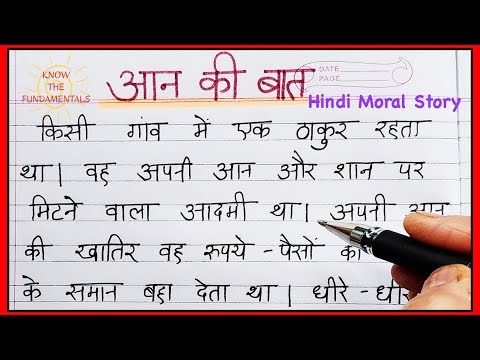 KNOW
THE
FUNDAMENTALS
आन की बात
DATE
PAGE
Hindi Moral Story
किसी गांव में एक ठाकुर रहता
था। वह अपनी आन और शान पर
मिटने वाला आदमी था। अपनी आन
की खातिर वह रुपये - पैसों को
के समान बहा देता था। धीरे - धीरे